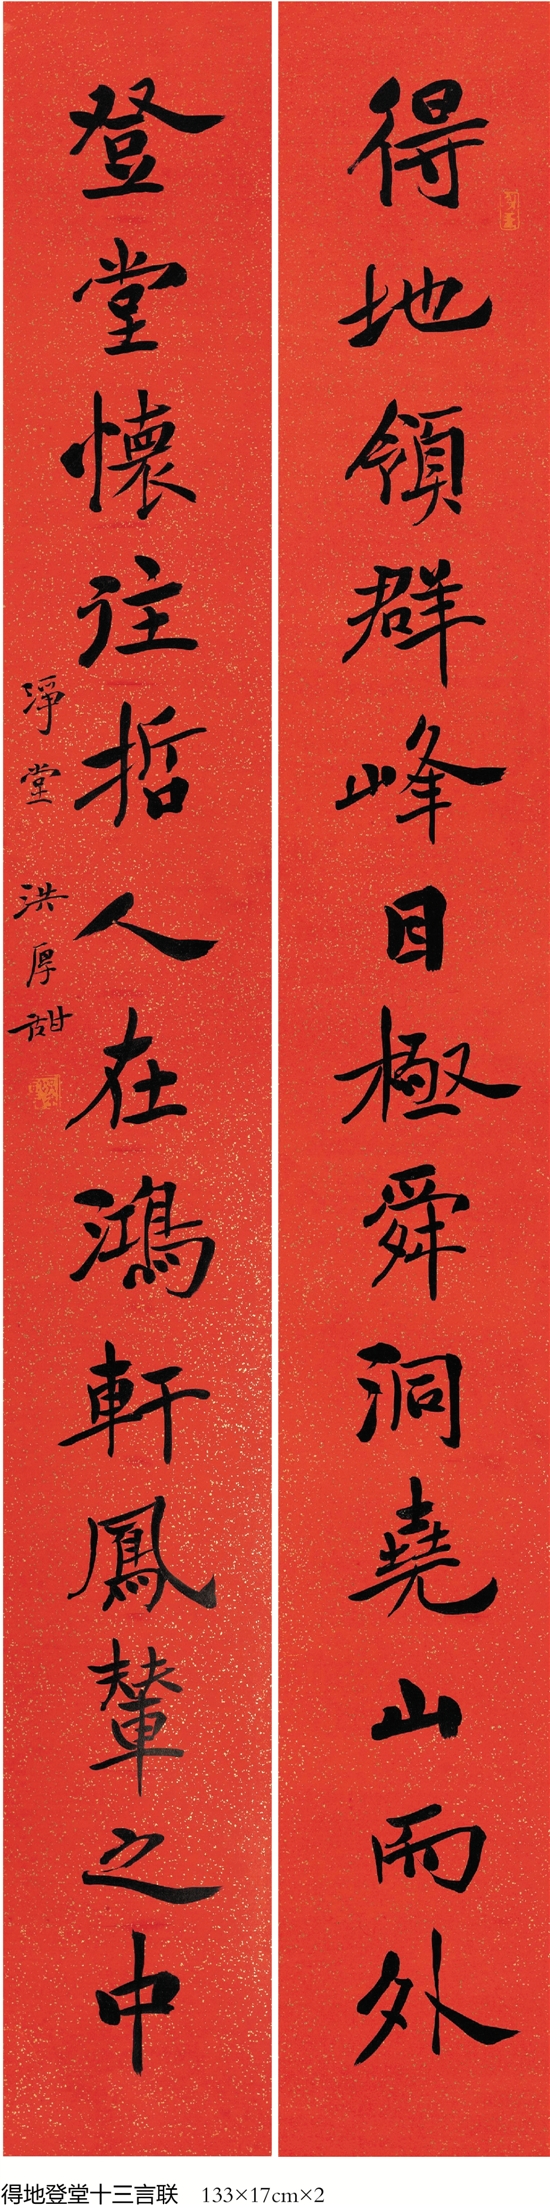 得地領群峰目極舜洞堯山而外
登堂懷往哲人在鴻軒鳳輦之中
淨堂 洪厚甜
得地登堂十三言联 133×17cm×2